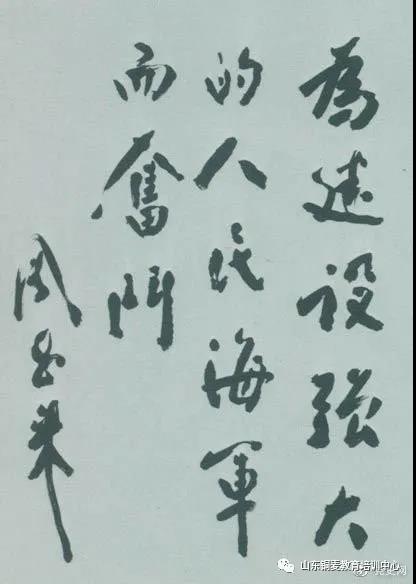 為建设强大
的人民海軍
而奮鬥
周恩来
山东铜麦教育培训中心